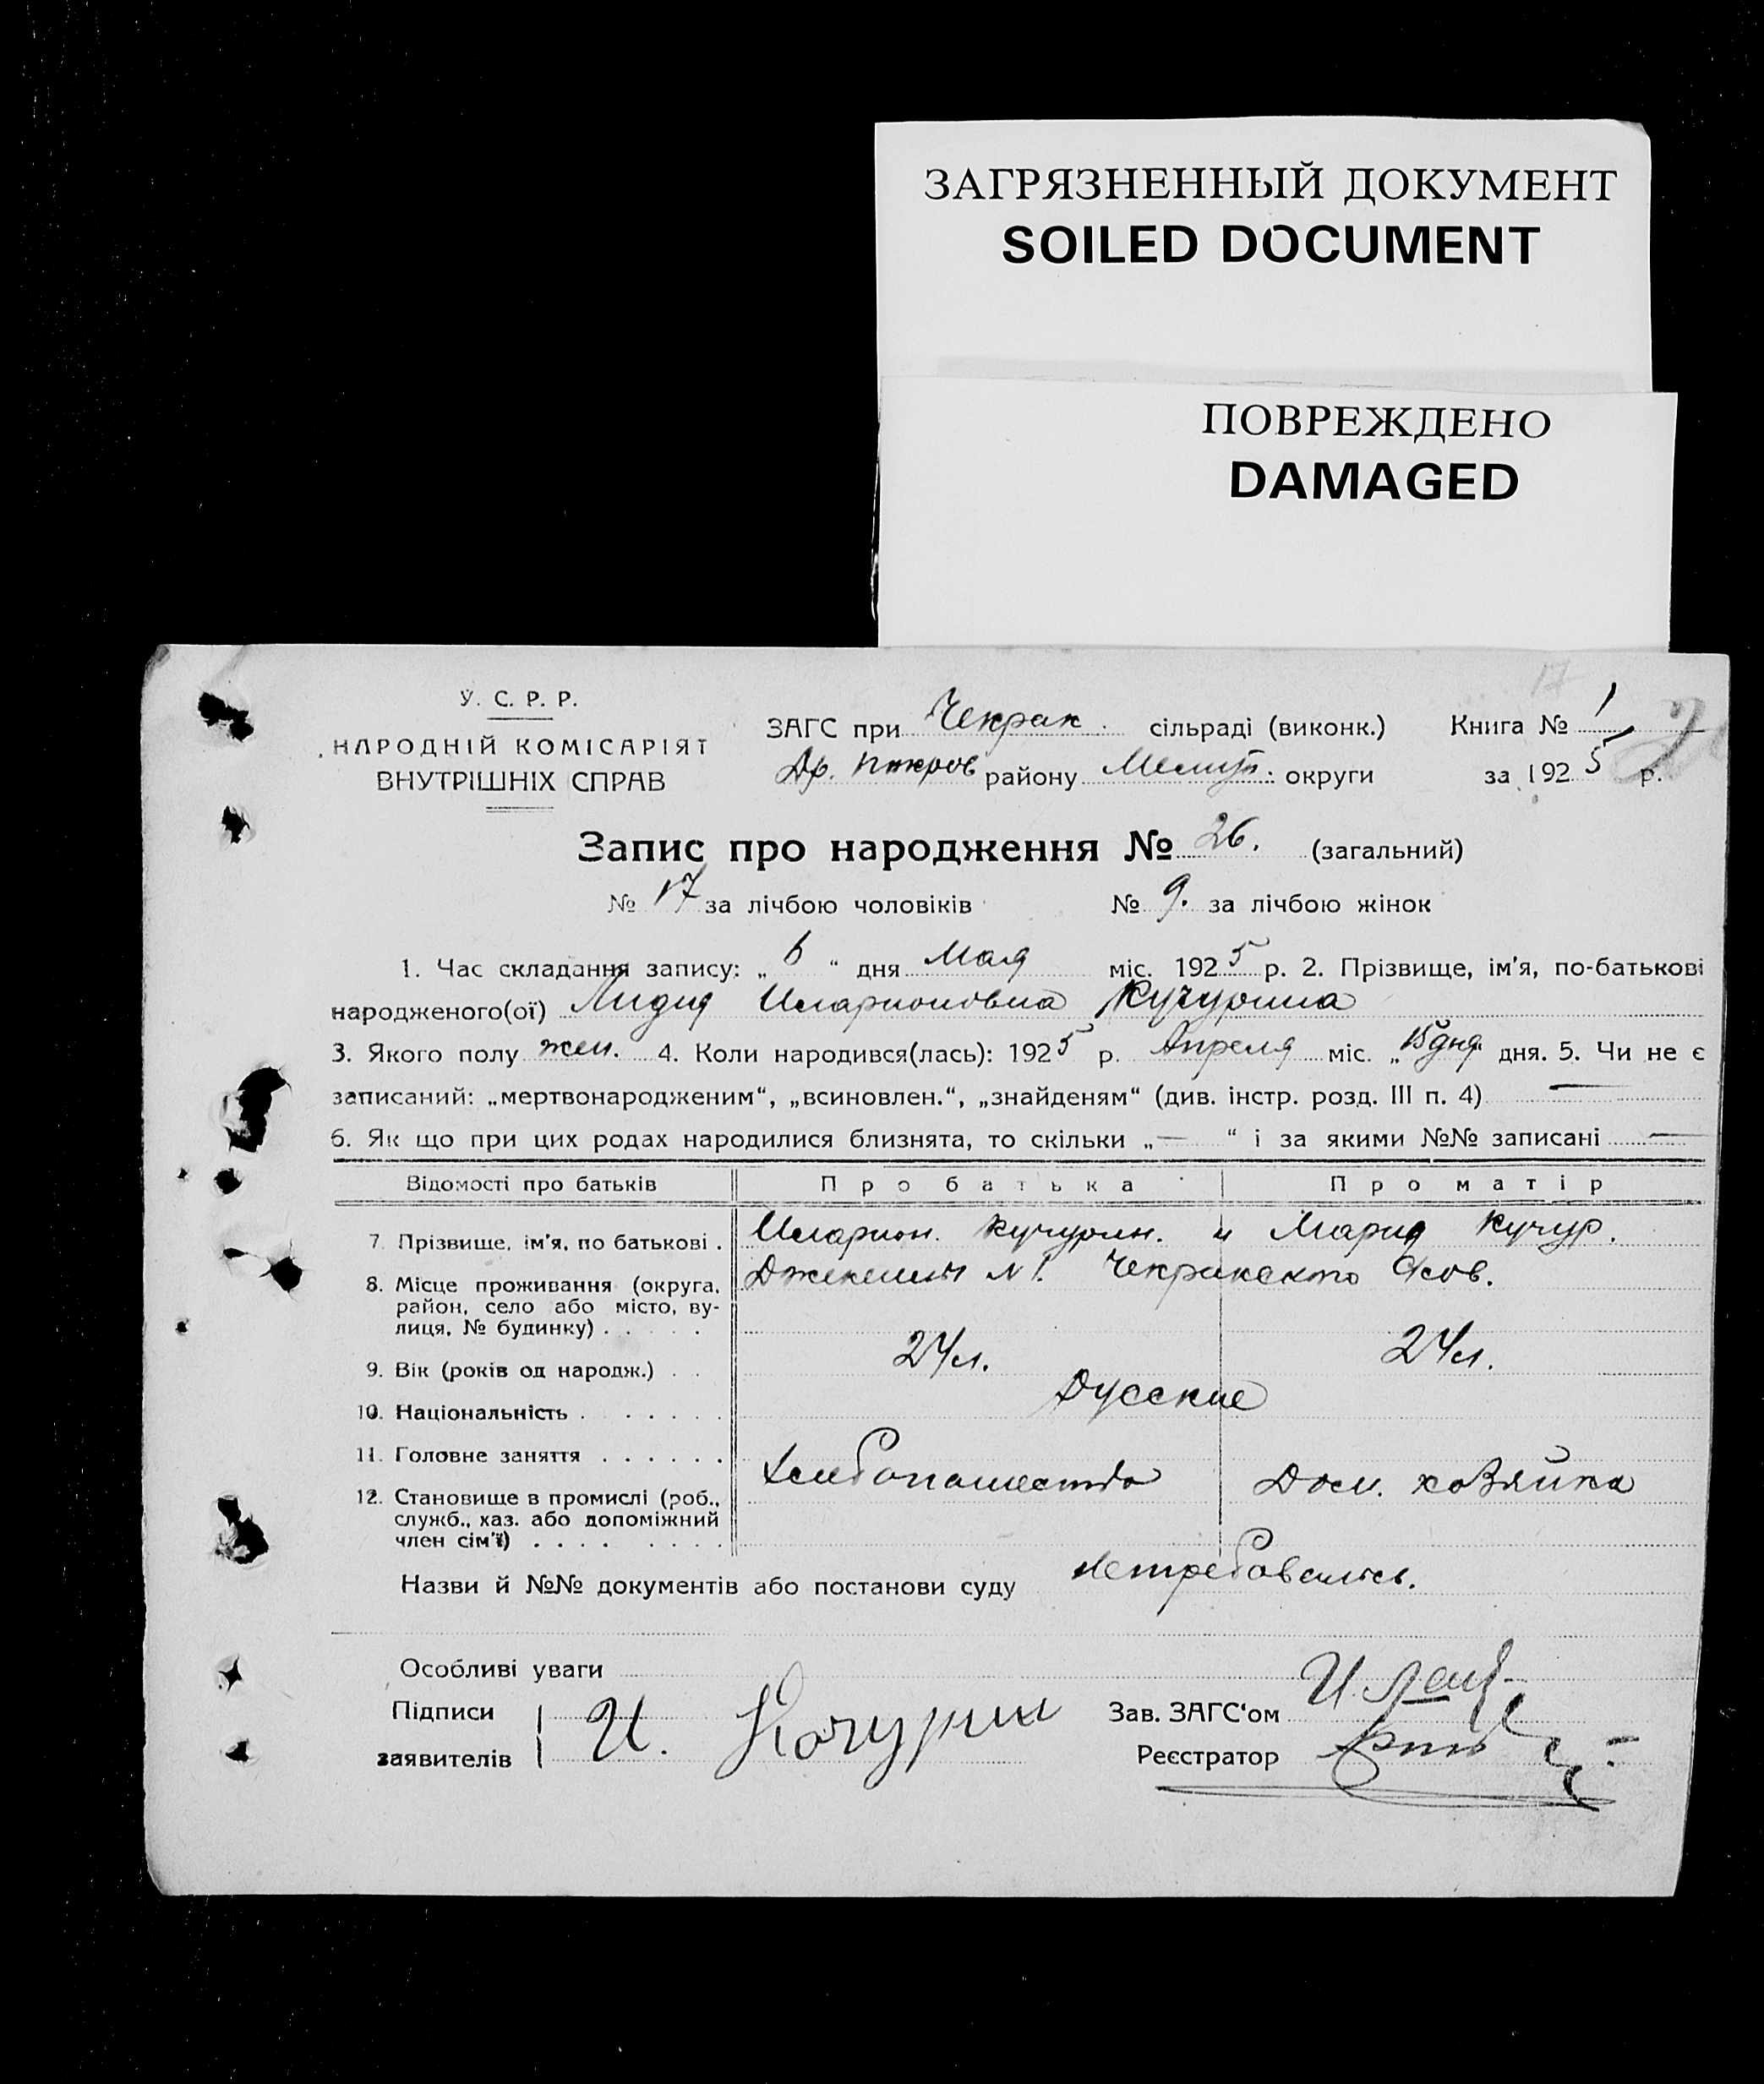 ЗАГРЯЗНЕННЫЙ ДОКУМЕНТ
SOILED DOCUMENT
ПОВРЕЖДЕНО
DAMAGED
17
У. С. Р. Р.
НАРОДНІЙ КОМІСАРІЯТ
ВНУТРІШНІХ СПРАВ
ЗАГС при Чекрак. сільраді (виконк.) Книга № 1
району округи за 1925 р.
Запис про народження № 26. (загальний)
№ 17 за лічбою чоловіків № 9. за лічбою жінок
1. Час складання запису: „ 6 “ дня Мая міс. 1925 р. 2. Прізвище, ім'я, по-батькові
народженого(ої) Лидия Иларионовна Кучурина
3. Якого полу жен. 4. Коли народився(лась): 1925 р. Апреля міс. „15 дня“ дня. 5. Чи не є
записаний: „мертвонародженим“, „всиновлен.“, „знайденям“ (див. інстр. розд. III п. 4) —
6. Як що при цих родах народилися близнята, то скільки „ — “ і за якими №№ записані —
Відомості про батьків Про батька Про матір
7. Прізвище, ім'я, по батькові . Иларион. Кучурин. и Мария Кучур.
8. Місце проживання (округа, N 1. Чекракского
район, село або місто, ву-
лиця, № будинку) . . . . .
9. Вік (років од народж.) . . 24 л. 24 л.
10. Національність . . . . . . . Русские
11. Головне заняття . . . . . . Хлебопашество Дом. хозяйка
12. Становище в промислі (роб.,
служб., хаз. або допоміжний
член сім'ї) . . . . . . . .
Назви й №№ документів або постанови суду Нетребовались.
Особливі уваги
Підписи
заявителів И. Кочурин
Зав. ЗАГС'ом
Реєстратор